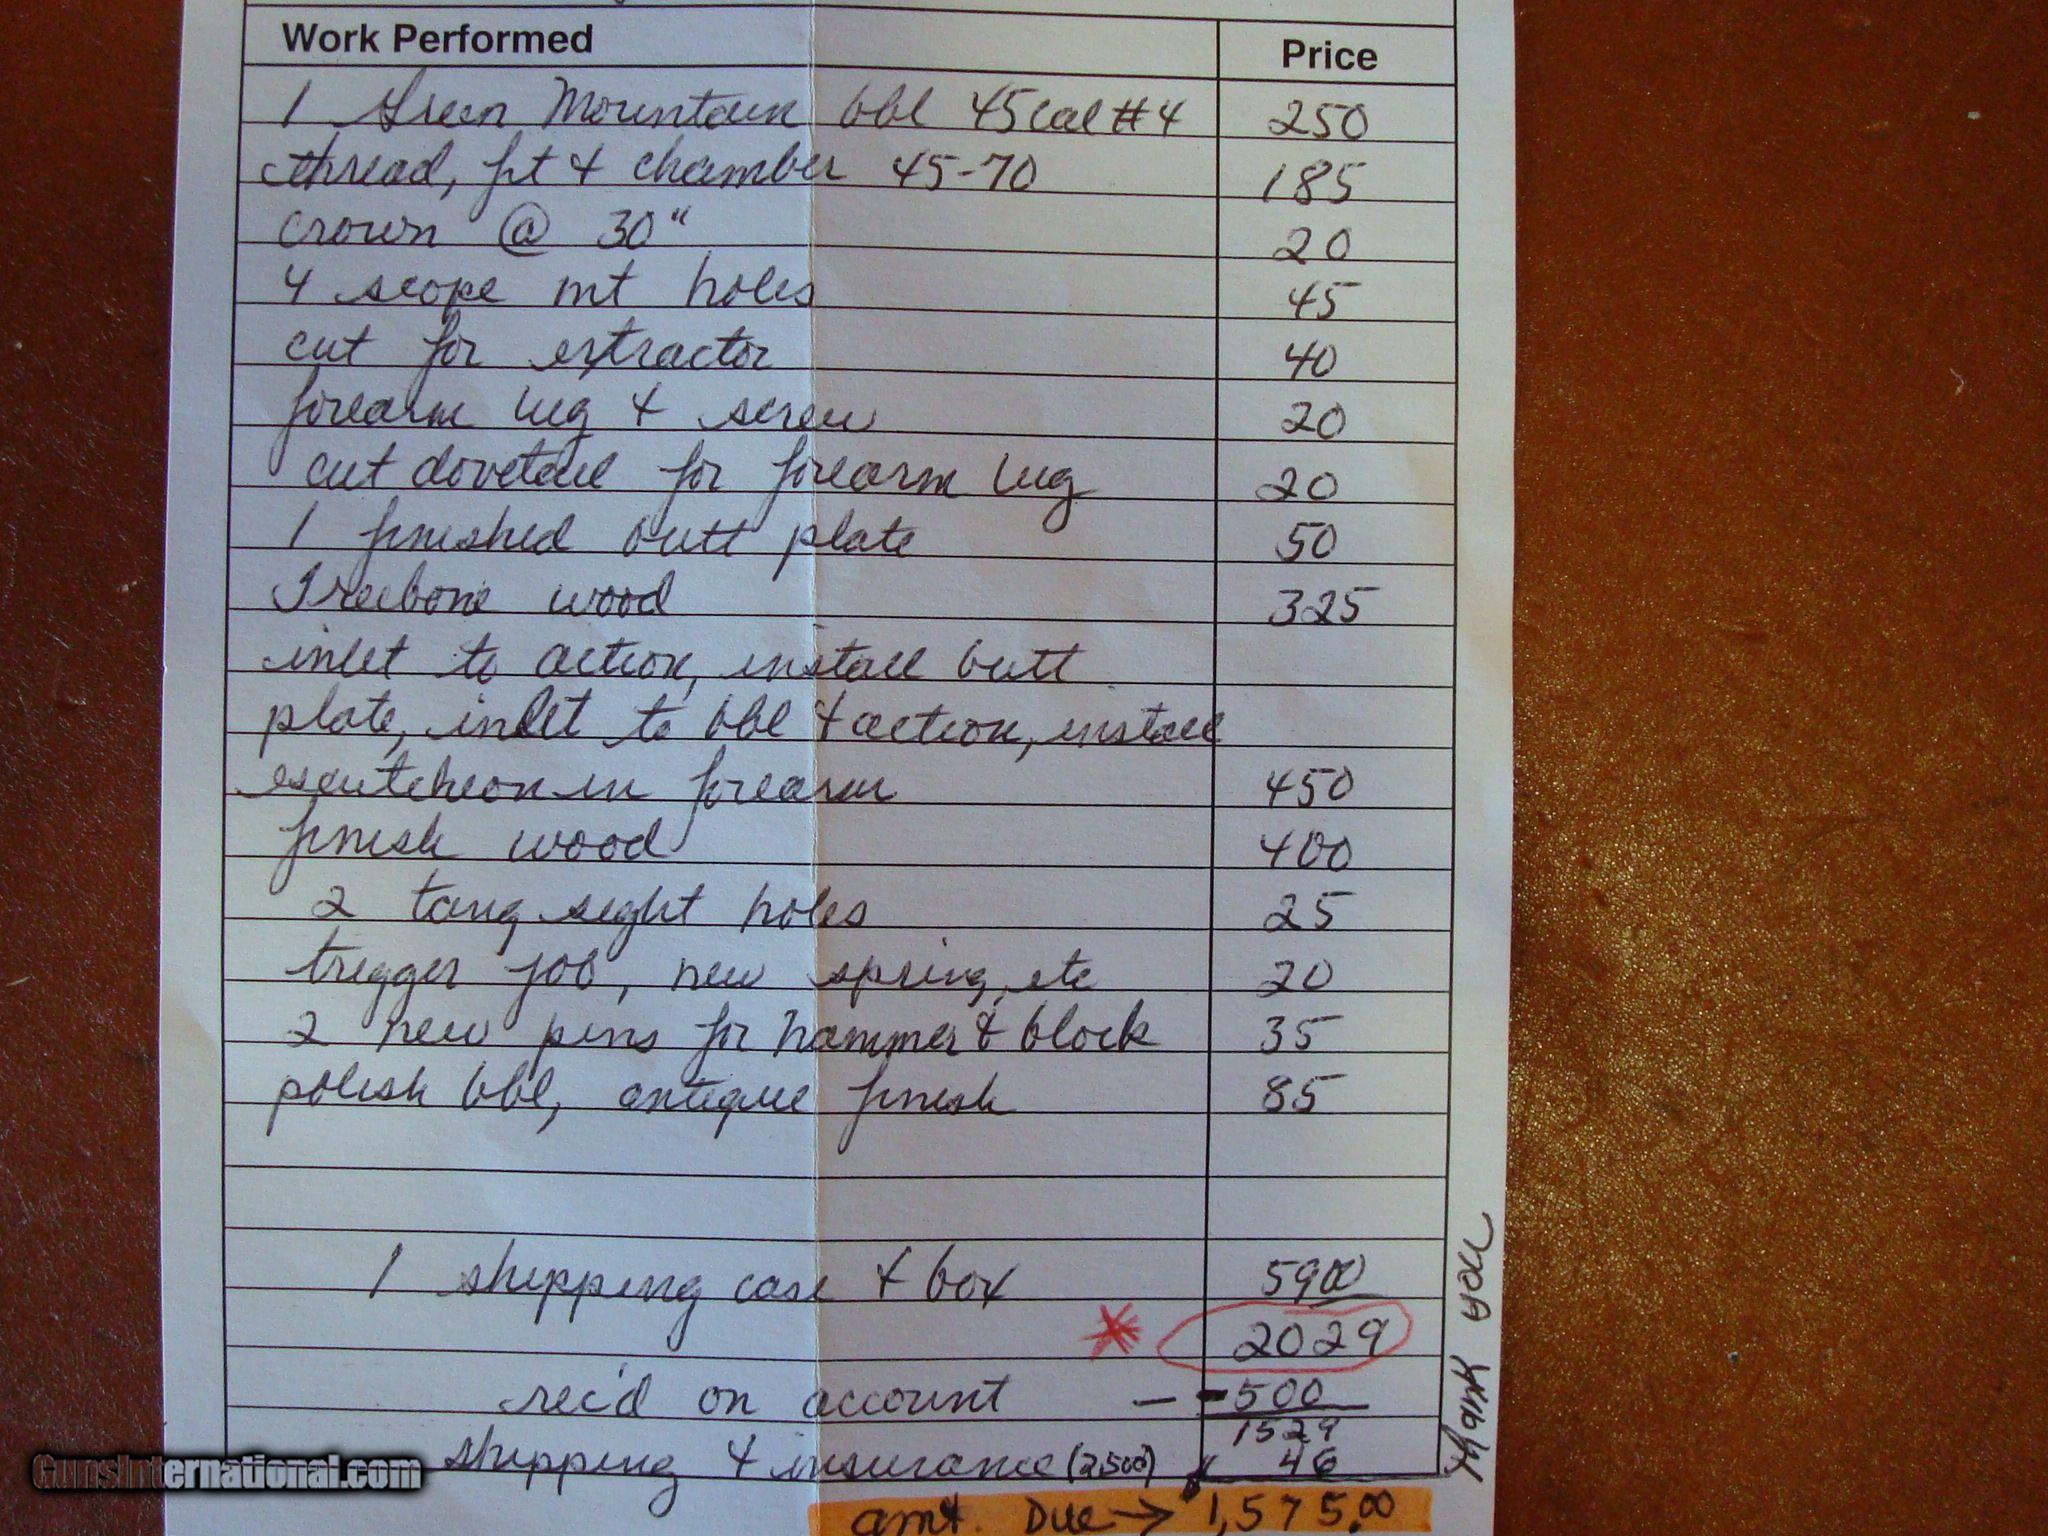 Work Performed Price
1 Green Mountain bbl 45 cal #4 250
thread, fit & chamber 45-70 185
crown @ 30" 20
4 scope mt holes 45
cut for extractor 40
forearm lug & screw 20
cut dovetail for forearm lug 20
1 finished butt plate 50
Treebone wood 325
inlet to action, install butt
plate, inlet to bbl & action, install
escutcheon in forearm 450
finish wood 400
2 tang sight holes 25
trigger job, new spring, etc 20
2 new pins for hammer & block 35
polish bbl, antique finish 85
1 shipping case & box 5900
* 2029
rec'd on account — -500
1529
shipping & insurance (2500) 46
amt. Due → 1,575.00
Thank you
GunsInternational.com